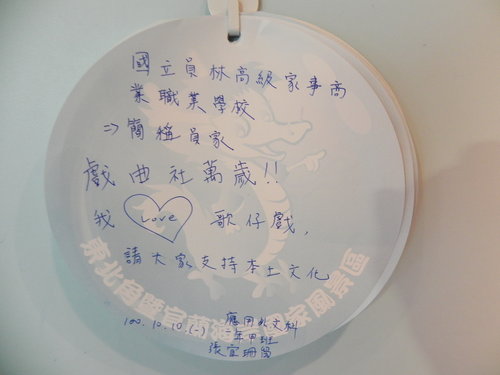 國立員林高級家事商
業職業學校
⇒簡稱員家
戲曲社萬歲!!
我 Love 歌仔戲,
請大家支持本土文化
東北角暨宜蘭海岸國家風景區
100.10.10.(一)
應用外文科
二年甲班